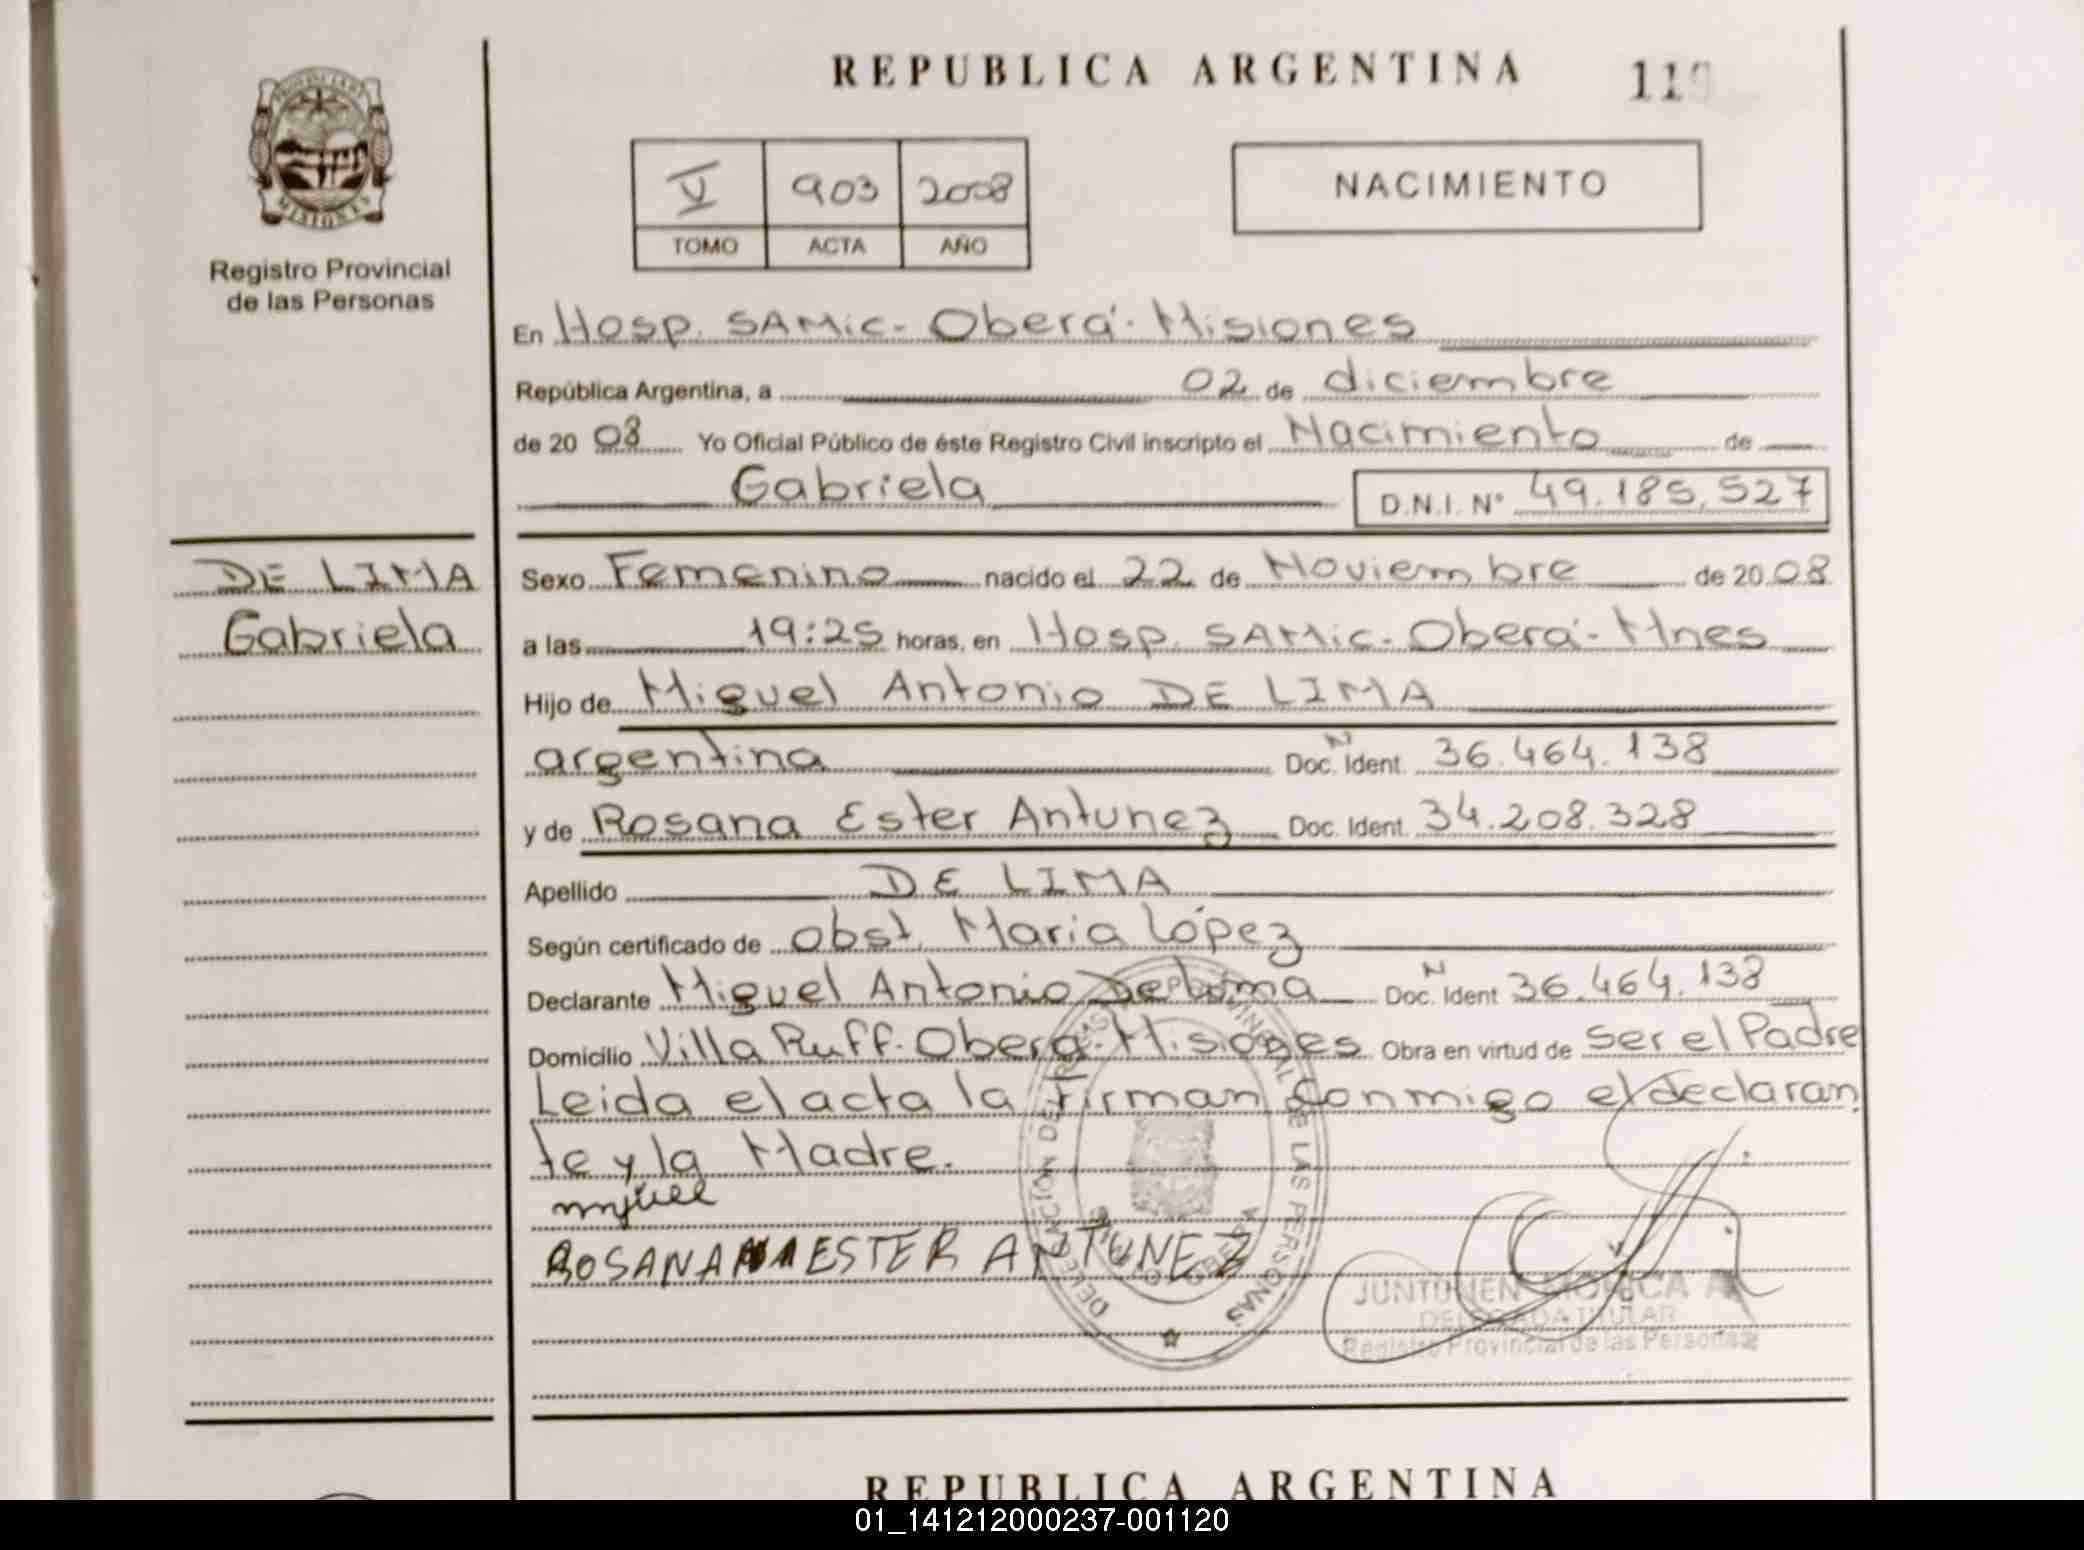 REPUBLICA ARGENTINA 11
PROVINCIA DE MISIONES
Registro Provincial
de las Personas
V 903 2008
TOMO ACTA AÑO
NACIMIENTO
En Hosp. SAMic - Oberá - Misiones
República Argentina, a 02 de diciembre
de 20 08 Yo Oficial Público de éste Registro Civil inscripto el Nacimiento de
Gabriela D.N.I. N° 49.185.527
DE LIMA
Gabriela
Sexo Femenino nacido el 22 de Noviembre de 20 08
a las 19:25 horas, en Hosp. SAMic - Oberá - Mnes
Hijo de Miguel Antonio DE LIMA
argentina Doc. Ident. N 36.464.138
y de Rosana Ester Antunez Doc. Ident. 34.208.328
Apellido DE LIMA
Según certificado de obst. Maria López
Declarante Miguel Antonio De Lima Doc. Ident N 36.464.138
Domicilio Villa Ruff - Oberá - Misiones Obra en virtud de Ser el Padre
Leida el acta la Firman Conmigo el declaran
te y la Madre.
ROSANA ESTER ANTUNEZ
DELEGACION DEL REGISTRO PROVINCIAL DE LAS PERSONAS
OBERA
JUNTUNEN MONICA A
DELEGADA TITULAR
Registro Provincial de las Personas
REPUBLICA ARGENTINA
01_141212000237-001120